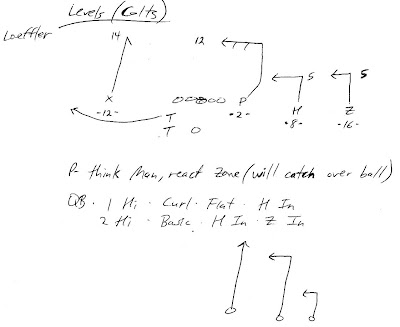 Levels (Colts)
Loeffler
14 12 5 5
X P H Z
-12- T -2- -8- -16-
T O
P- think Man, react Zone (will catch over ball)
QB · 1 Hi · Curl · Flat · H In
2 Hi · Basic · H In · Z In